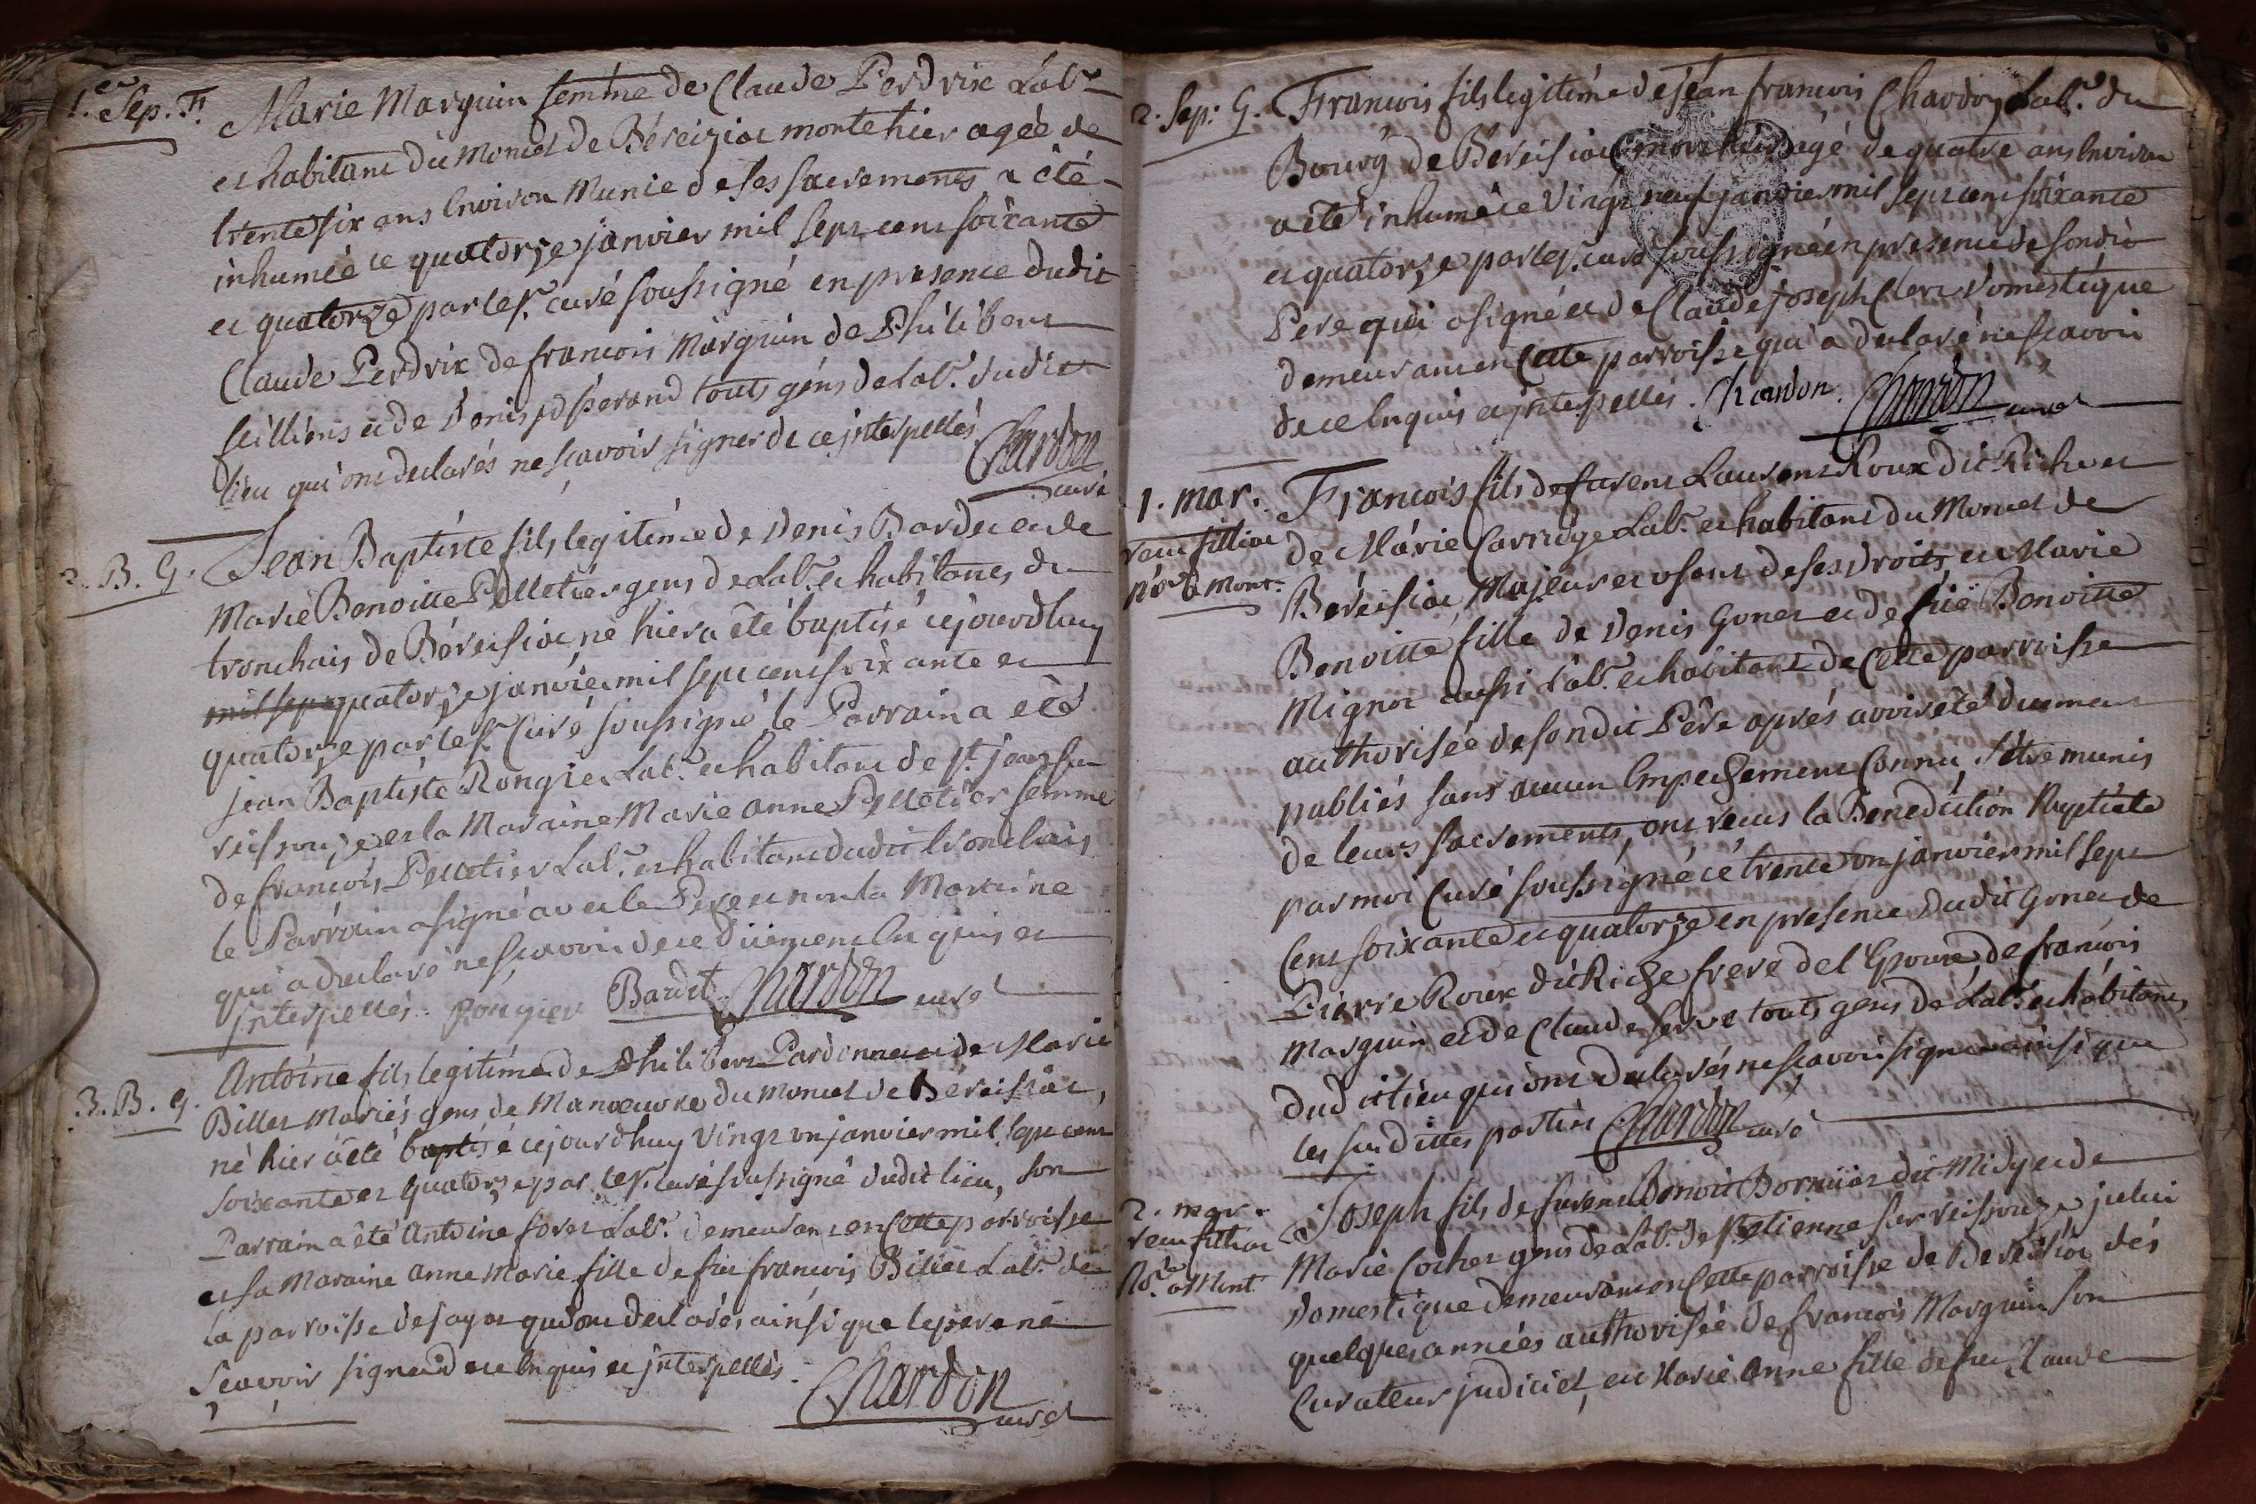 1.er Sep. F.
Marie Marguin femme de Claude Perdrix Lab.r
et habitant du Moncel de Béreiziat morte hier agée de
trente six ans Environ Munie de ses sacrements a été
inhumée ce quatorze janvier mil sept cent soixante
et quatorze par le s.r curé soussigné en presence dudit
Claude Perdrix de francois Marguin de Philibert
et de Denis tous gens de Lab.r dudit
lieu qui ont declarés ne scavoir signer de ce interpellés
Chardon curé
2. B. G.
Jean Baptiste fils legitime de Denis Bardet et de
Marie Benoitte Pelletier gens de Lab.r et habitants du
tronchais de Béreisiat né hier a été baptisé cejourdhuy
mil sept quatorze janvier mil sept cent soixante et
quatorze par le s.r Curé soussigné le Parrain a été
jean Baptiste Rongier Lab.r et habitant de s.t jean sur
reissouze et la Maraine Marie anne Pelletier femme
de francois Pelletier Lab.r et habitant dudit tronchais
le Parrain a signé avec le Pere et non la Maraine
qui a declaré ne scavoir de ce düement Enquis et
interpellés. Rongier Bardet Chardon curé
3. B. G.
Antoine fils legitime de Philibert Pardonnet et de Marie
Billet Mariés gens de Manoeuvre du Moncel de Béreisiat,
né hier a été baptisé cejourdhuy Vingt un janvier mil sept cent
soixante et quatorze par le s.r curé soussigné dudit lieu, son
Parrain a été Antoine foret Lab.r demeurant en Cette parroisse
et sa Maraine anne Marie fille de feu francois Billet Lab.r de
la parroisse de qui ont declarés ainsi que le pere ne
Scavoir signer de ce Enquis et interpellés.
Chardon curé
2. Sep. G.
Francois fils legitime de jean francois Chardon Lab.r du
Bourg de Béreisiat mort hier agé de quatre ans Environ
a été inhumé ce Vingt neuf janvier mil sept cent soixante
et quatorze par le s.r curé soussigné en presence de sondit
Pere qui a signé et de Claude joseph Clerc Domestique
demeurant en Cette parroisse qui a declaré ne scavoir
de ce Enquis et interpellés. Chardon. Chardon curé
1. mar.
Francois fils de furent Laurent Roux dit Riche et
de Marie Carruge Lab.r et habitant du Moncel de
Béreisiat Majeur et usant de ses droits, et Marie
Benoitte fille de Denis Gonet et de füe Benoitte
Mignot aussi Lab.r et habitant de Cette parroisse
authorisée de sondit Père aprés avoir été duement
publiés sans aucun Empechement Connu, s'être munis
de leurs sacrements, ont reçus la Benediction Nuptiale
par moi Curé soussigné ce trente un janvier mil sept
Cent soixante et quatorze en presence dudit Gonet de
Pierre Roux dit Riche frere de l'Epoux de francois
Marguin et de Claude serve touts gens de Lab.r et habitans
dudit lieu qui ont declarés ne scavoir signer ainsi que
les susdittes parties Chardon curé
2. mar.
Joseph fils de furent Benoit Bornüat dit Midy et de
Marie Cochet gens de Lab.r de s.t etienne sur reissouze, jului
Domestique demeurant en Cette parroisse de Béreisiat dés
quelques années authorisée de francois Marguin son
Curateur judiciel, et Marie Anne fille de feu Claude